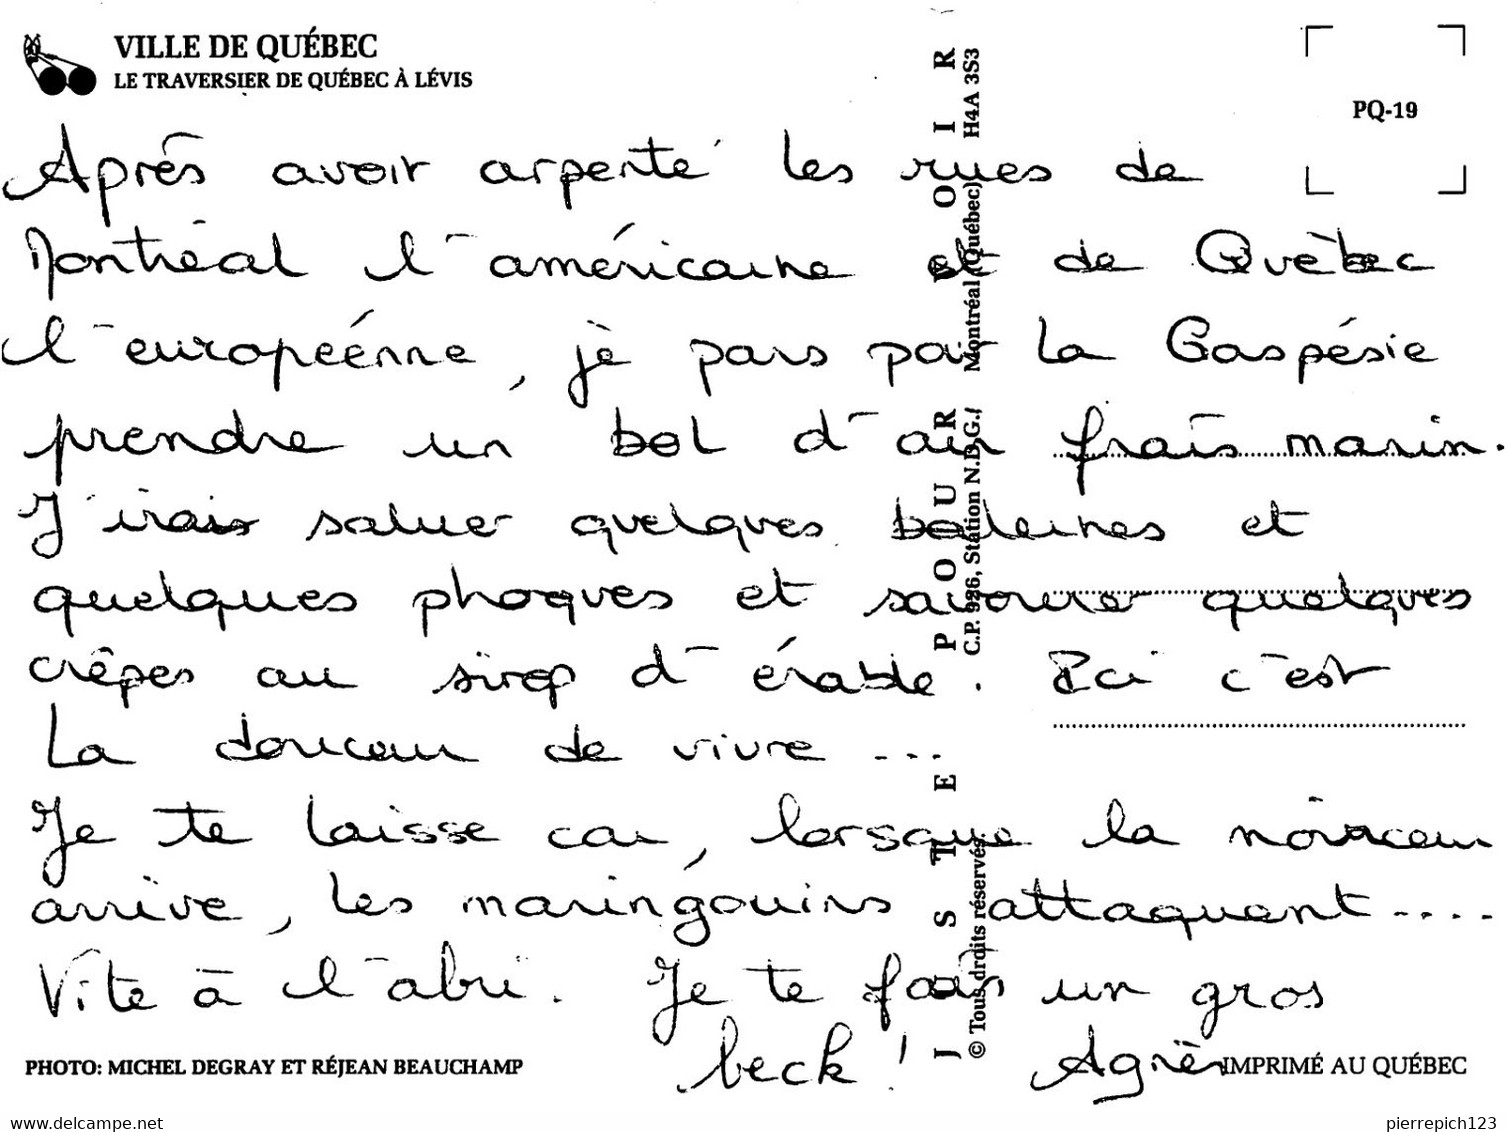 VILLE DE QUÉBEC
LE TRAVERSIER DE QUÉBEC À LÉVIS
PQ-19
Après avoir arpenté les rues de
Montréal l'américaine et de Québec
l'européenne, je pars par la Gaspésie
prendre un bol d'air frais marin.
J'irais saluer quelques baleines et
quelques phoques et savourer quelques
crêpes au sirop d'érable. Ici c'est
La douceur de vivre ...
Je te laisse car, lorsque la noirceur
arrive, les maringouins attaquent....
Vite à l'abri. Je te fais un gros
beck! Agnès
JUSTE POUR VOIR
C.P. 986, Station N.D.G./ Montréal (Québec) H4A 3S3
© Tous droits réservés
PHOTO: MICHEL DEGRAY ET RÉJEAN BEAUCHAMP
IMPRIMÉ AU QUÉBEC
www.delcampe.net
pierrepich123